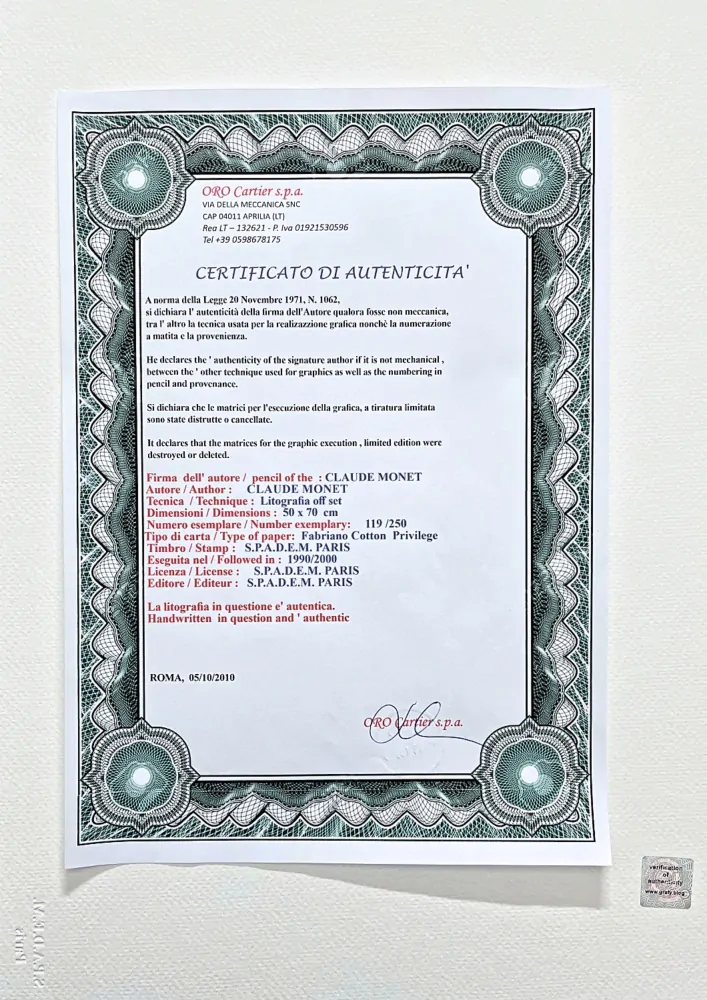 ORO Cartier s.p.a.
VIA DELLA MECCANICA SNC
CAP 04011 APRILIA (LT)
Rea LT – 132621 - P. Iva 01921530596
Tel +39 0598678175
CERTIFICATO DI AUTENTICITA'
A norma della Legge 20 Novembre 1971, N. 1062,
si dichiara l' autenticità della firma dell'Autore qualora fosse non meccanica,
tra l' altro la tecnica usata per la realizazzione grafica nonchè la numerazione
a matita e la provenienza.
He declares the ' authenticity of the signature author if it is not mechanical ,
between the ' other technique used for graphics as well as the numbering in
pencil and provenance.
Si dichiara che le matrici per l'esecuzione della grafica, a tiratura limitata
sono state distrutte o cancellate.
It declares that the matrices for the graphic execution , limited edition were
destroyed or deleted.
Firma dell' autore / pencil of the : CLAUDE MONET
Autore / Author : CLAUDE MONET
Tecnica / Technique : Litografia off set
Dimensioni / Dimensions : 50 x 70 cm
Numero esemplare / Number exemplary: 119 /250
Tipo di carta / Type of paper: Fabriano Cotton Privilege
Timbro / Stamp : S.P.A.D.E.M. PARIS
Eseguita nel / Followed in : 1990/2000
Licenza / License : S.P.A.D.E.M. PARIS
Editore / Editeur : S.P.A.D.E.M. PARIS
La litografia in questione e' autentica.
Handwritten in question and ' authentic
ROMA, 05/10/2010
ORO Cartier s.p.a.
verification
of
authenticity
www.grafy.blog